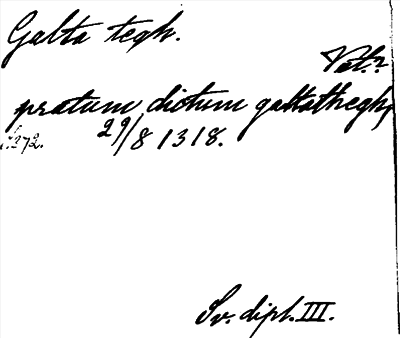 Galta tegh.
Vet.?
pratum dictum galtathegh,
s. 272. 29/8 1318.
Sv. dipl. III.